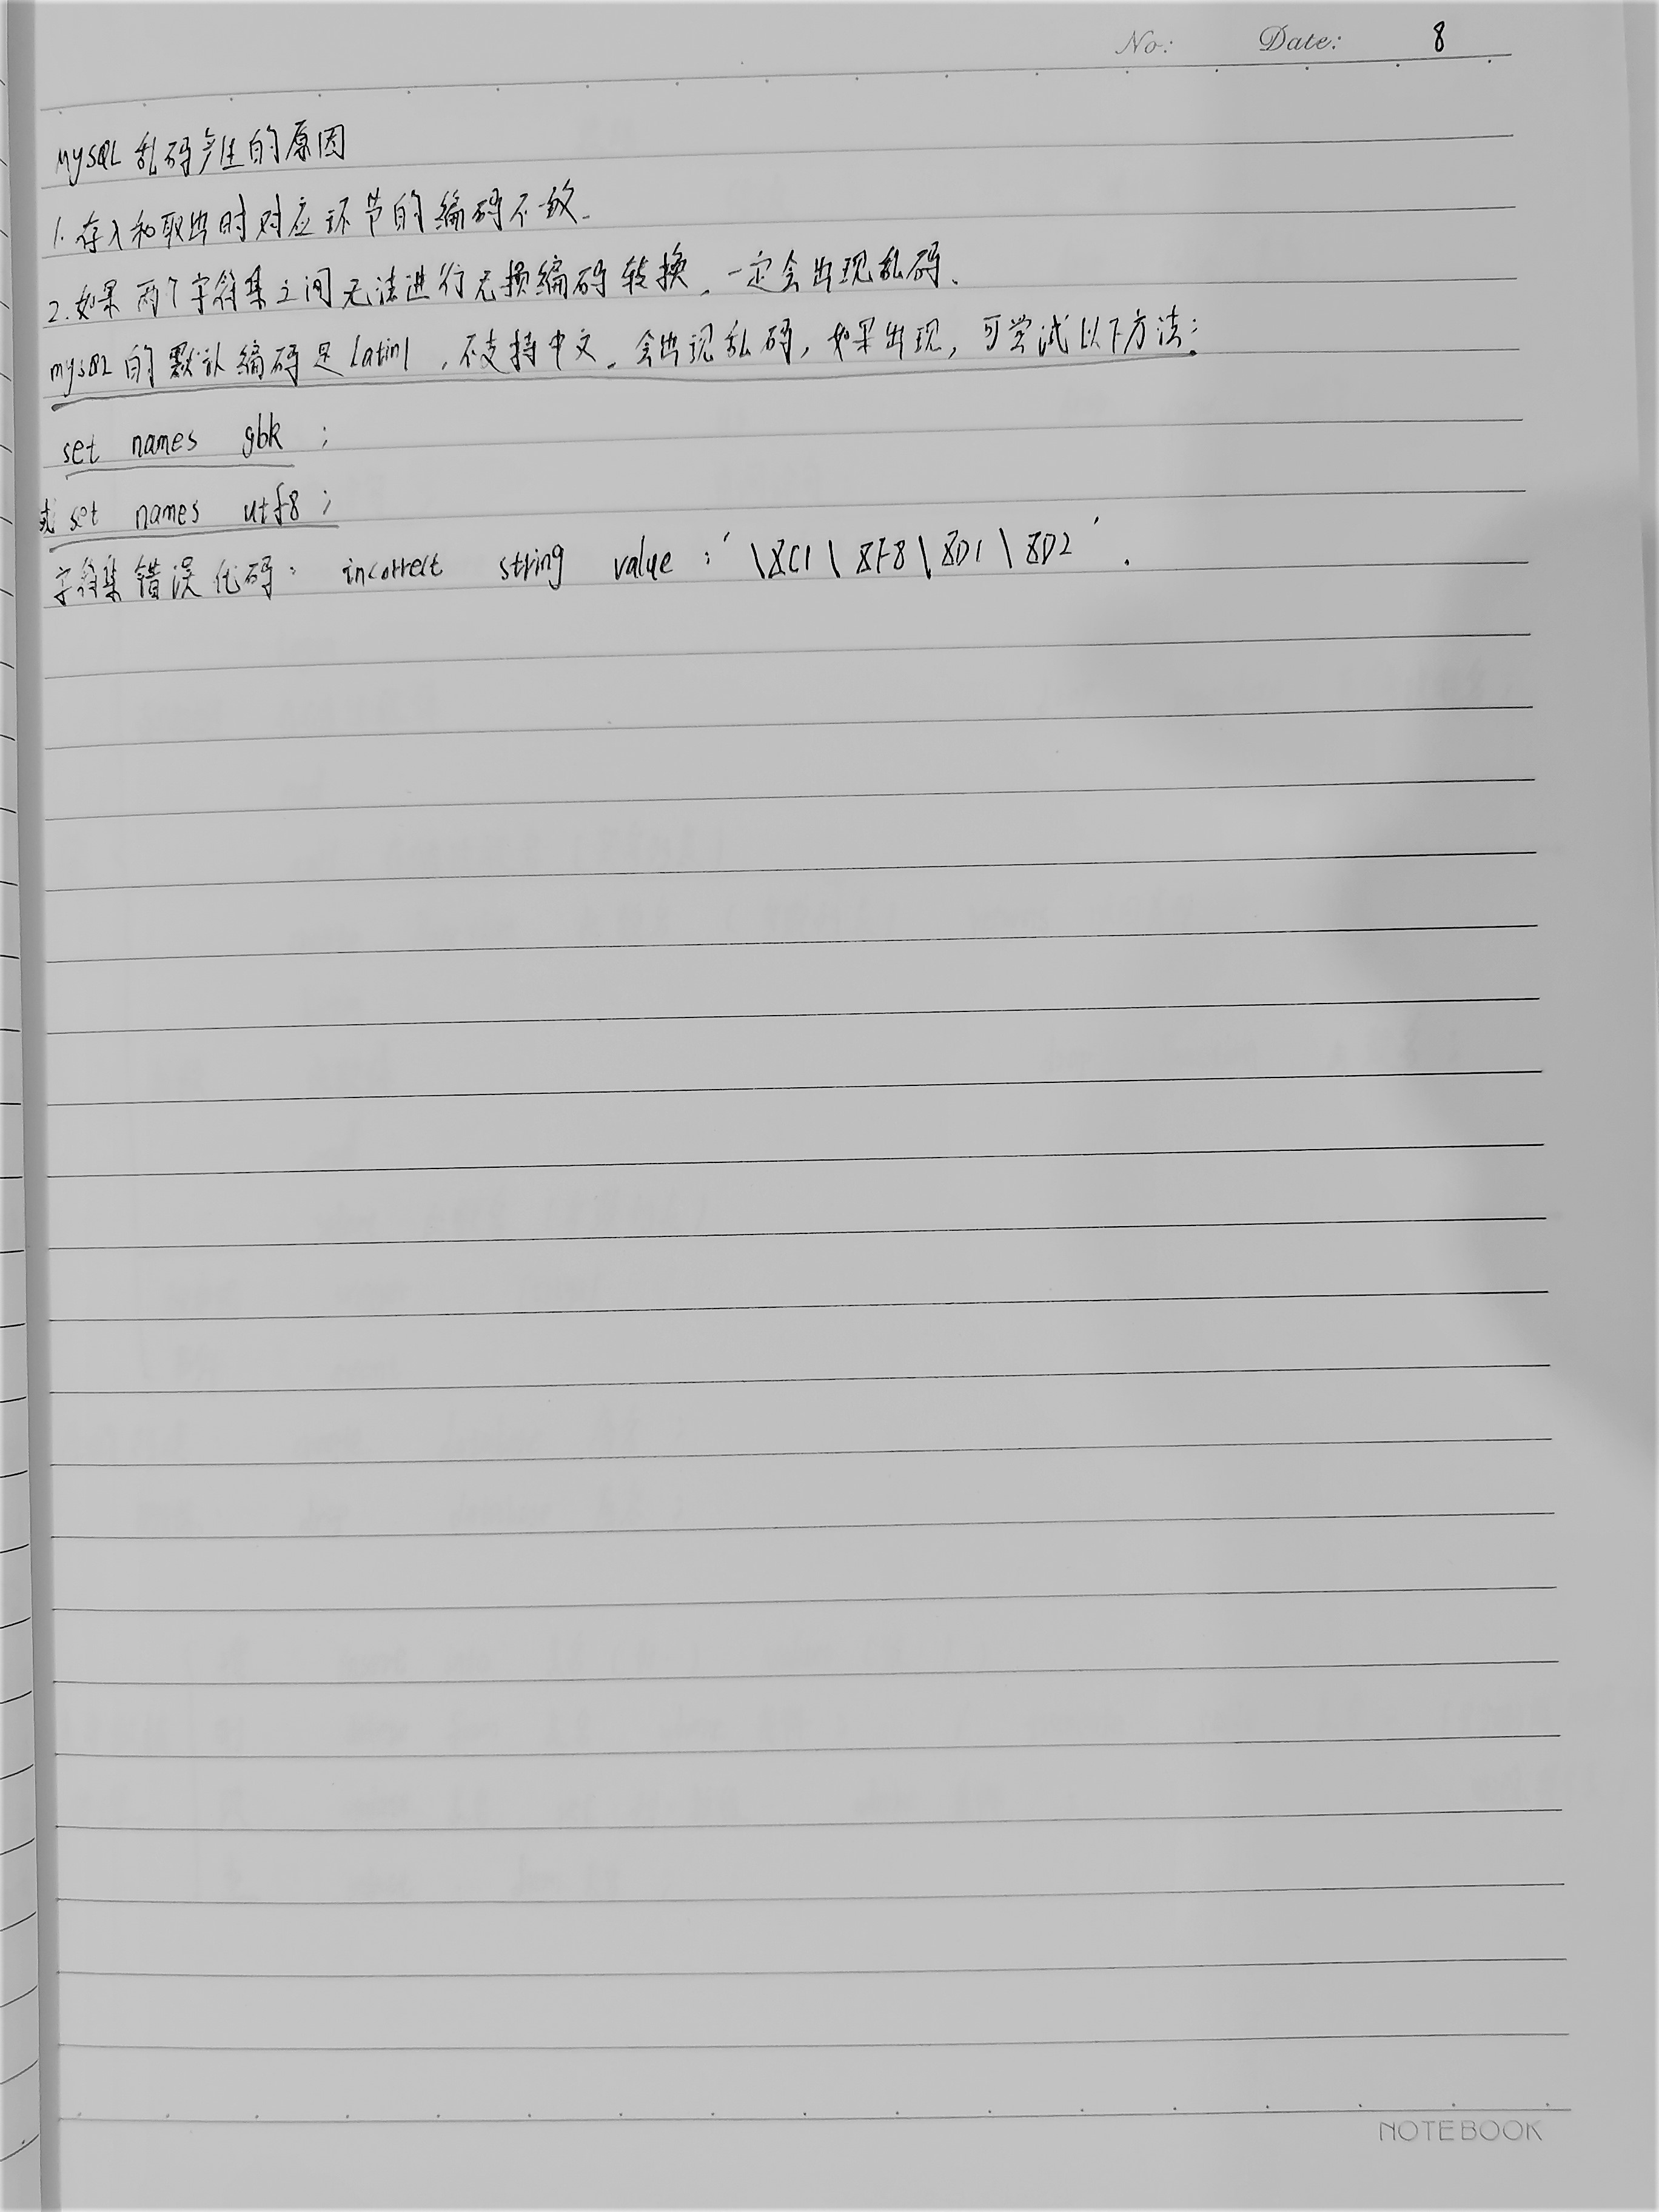 No: Date: 8
MySQL 乱码产生的原因
1. 存入和取出时对应环节的编码不致.
2. 如果两个字符集之间无法进行无损编码转换，一定会出现乱码、
mysQL的默认编码是latin1，不支持中文，会出现乱码，如果出现，可尝试以下方法：
set names gbk ;
或 set names utf8 ;
字符集错误代码： incorrect string value : '\XC1\XF8\XD1\XD2' .
NOTEBOOK